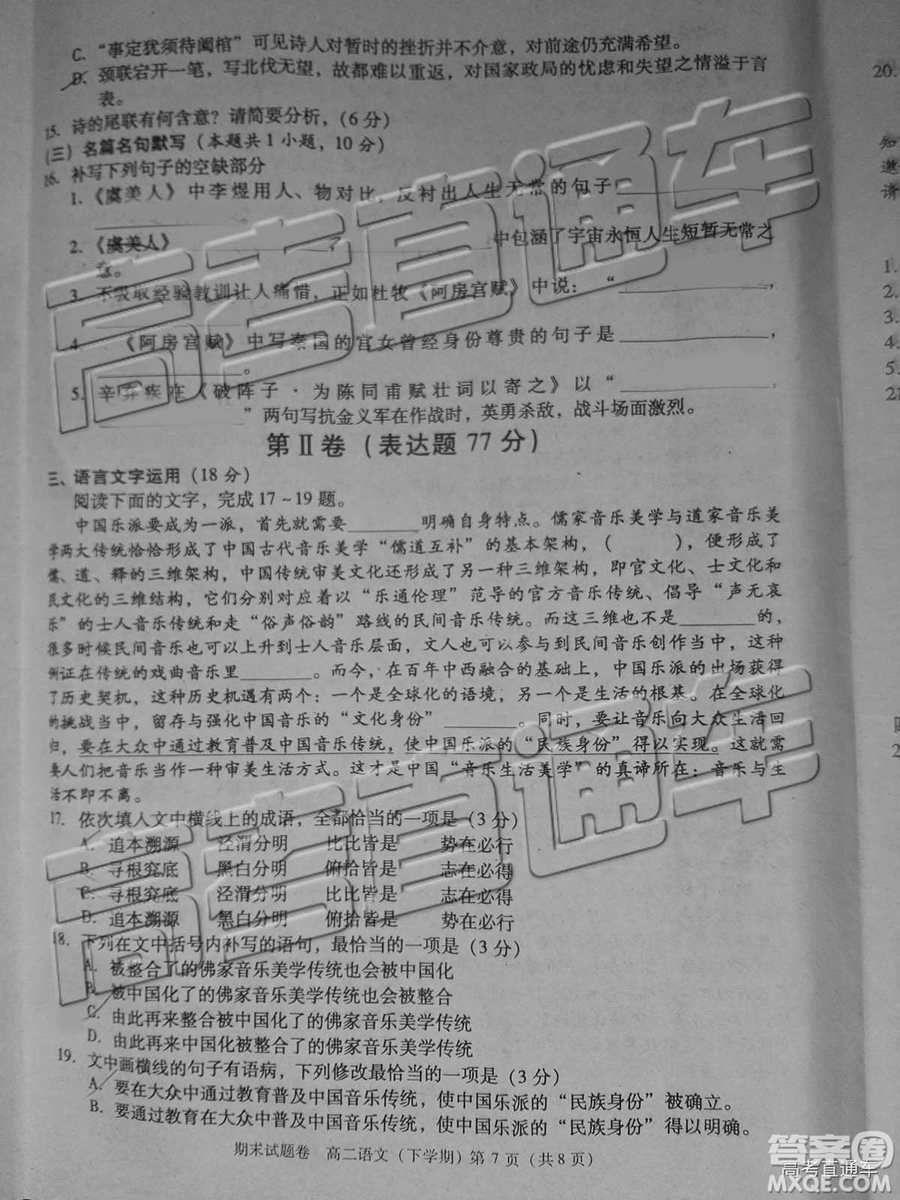 C. “事定犹须待阖棺”可见诗人对暂时的挫折并不介意，对前途仍充满希望。
D. 颈联宕开一笔，写北伐无望，故都难以重返，对国家政局的忧虑和失望之情溢于言
表。
15. 诗的尾联有何含意？请简要分析，(6分)
(三) 名篇名句默写（本题共1小题，10分）
16. 补写下列句子的空缺部分
1. 《虞美人》中李煜用人、物对比，反衬出人生无常的句子____________，
____________。
2. 《虞美人》____________，____________中包涵了宇宙永恒人生短暂无常之
意。
3. 不吸取经验教训让人痛惜，正如杜牧《阿房宫赋》中说：“____________，
____________
4. 《阿房宫赋》中写秦国的宫女曾经身份尊贵的句子是____________，
____________。
5. 辛弃疾在《破阵子·为陈同甫赋壮词以寄之》以“____________，
____________”两句写抗金义军在作战时，英勇杀敌，战斗场面激烈。
第Ⅱ卷（表达题 77分）
三、语言文字运用（18分）
阅读下面的文字，完成17～19题。
中国乐派要成为一派，首先就需要______明确自身特点。儒家音乐美学与道家音乐美
学两大传统恰恰形成了中国古代音乐美学“儒道互补”的基本架构，（　　），便成了
儒、道、释的三维架构，中国传统审美文化还形成了另一种三维架构，即官文化、士文化和
民文化的三维结构，它们分别对应着以“乐通伦理”范导的官方音乐传统、倡导“声无哀
乐”的士人音乐传统和走“俗声俗韵”路线的民间音乐传统。而这三维也不是______的，
很多时候民间音乐也可以上升到士人音乐层面，文人也可以参与到民间音乐创作当中，这
例证在传统的戏曲音乐里______。而今，在百年中西融合的基础上，中国乐派的出场获得
了历史契机，这种历史机遇有两个：一个是全球化的语境，另一个是生活的根基。在全球化
的挑战当中，留存与强化中国音乐的“文化身份”______。同时，要让音乐向大众生活回
归，要在大众中通过教育普及中国音乐传统，使中国乐派的“民族身份”得以实现。这就
要人们把音乐当作一种审美生活方式。这才是中国“音乐生活美学”的真谛所在：音乐与生
活不即不离。
17. 依次填入文中横线上的成语，全都恰当的一项是（3分）
A. 追本溯源　泾渭分明　比比皆是　势在必行
B. 寻根究底　黑白分明　俯拾皆是　志在必得
C. 寻根究底　泾渭分明　比比皆是　志在必得
D. 追本溯源　黑白分明　俯拾皆是　势在必行
18. 下列在文中括号内补写的语句，最恰当的一项是（3分）
A. 被整合了的佛家音乐美学传统也会被中国化
B. 被中国化了的佛家音乐美学传统也会被整合
C. 由此再来整合被中国化了的佛家音乐美学传统
D. 由此再来中国化被整合了的佛家音乐美学传统
19. 文中画横线的句子有语病，下列修改最恰当的一项是（3分）
A. 要在大众中通过教育普及中国音乐传统，使中国乐派的“民族身份”被确立。
B. 要通过教育在大众中普及中国音乐传统，使中国乐派的“民族身份”得以实现。
期末试题卷　高二语文（下学期）第7页（共8页）
20.
知
邀
请
1.
2.
3.
4.
21
四
2
高考直通车
高考直通车
答案圈
高考直通车
MXQE.COM